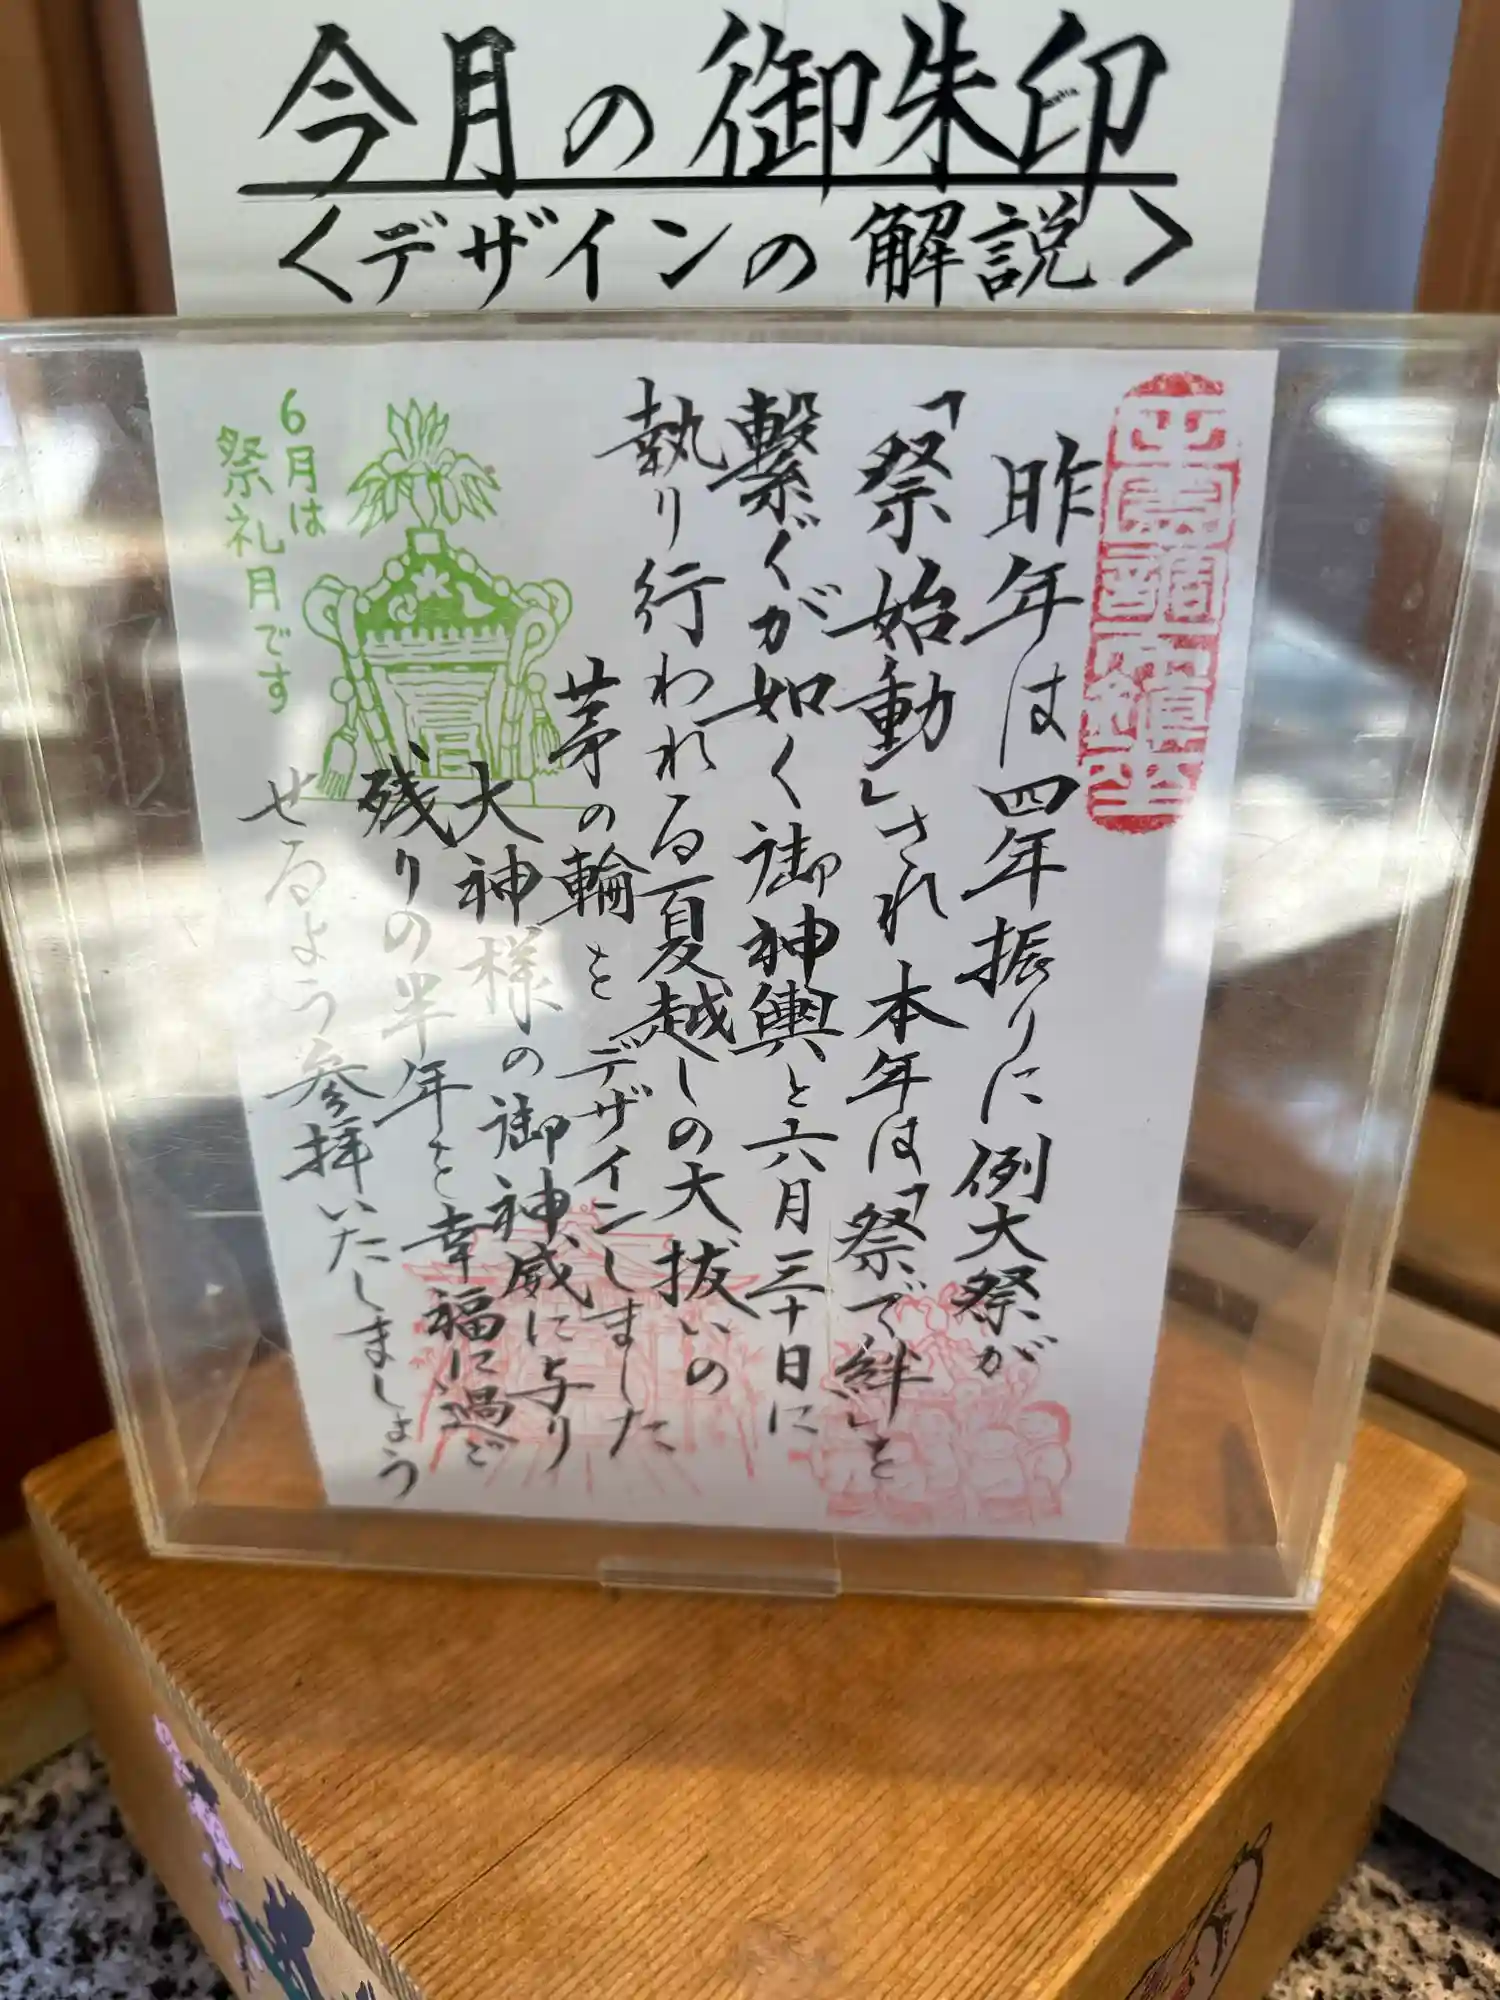 今月の御朱印
<デザインの解説>
昨年は四年振りに例大祭が
「祭始動」され本年は「祭で絆」を
繋ぐが如く御神輿と六月三十日に
執り行われる夏越しの大抜いの
茅の輪をデザインしました
大神様の御神威に与り
残りの半年を幸福に過ご
せるよう参拝いたしましょう
6月は
祭礼月です